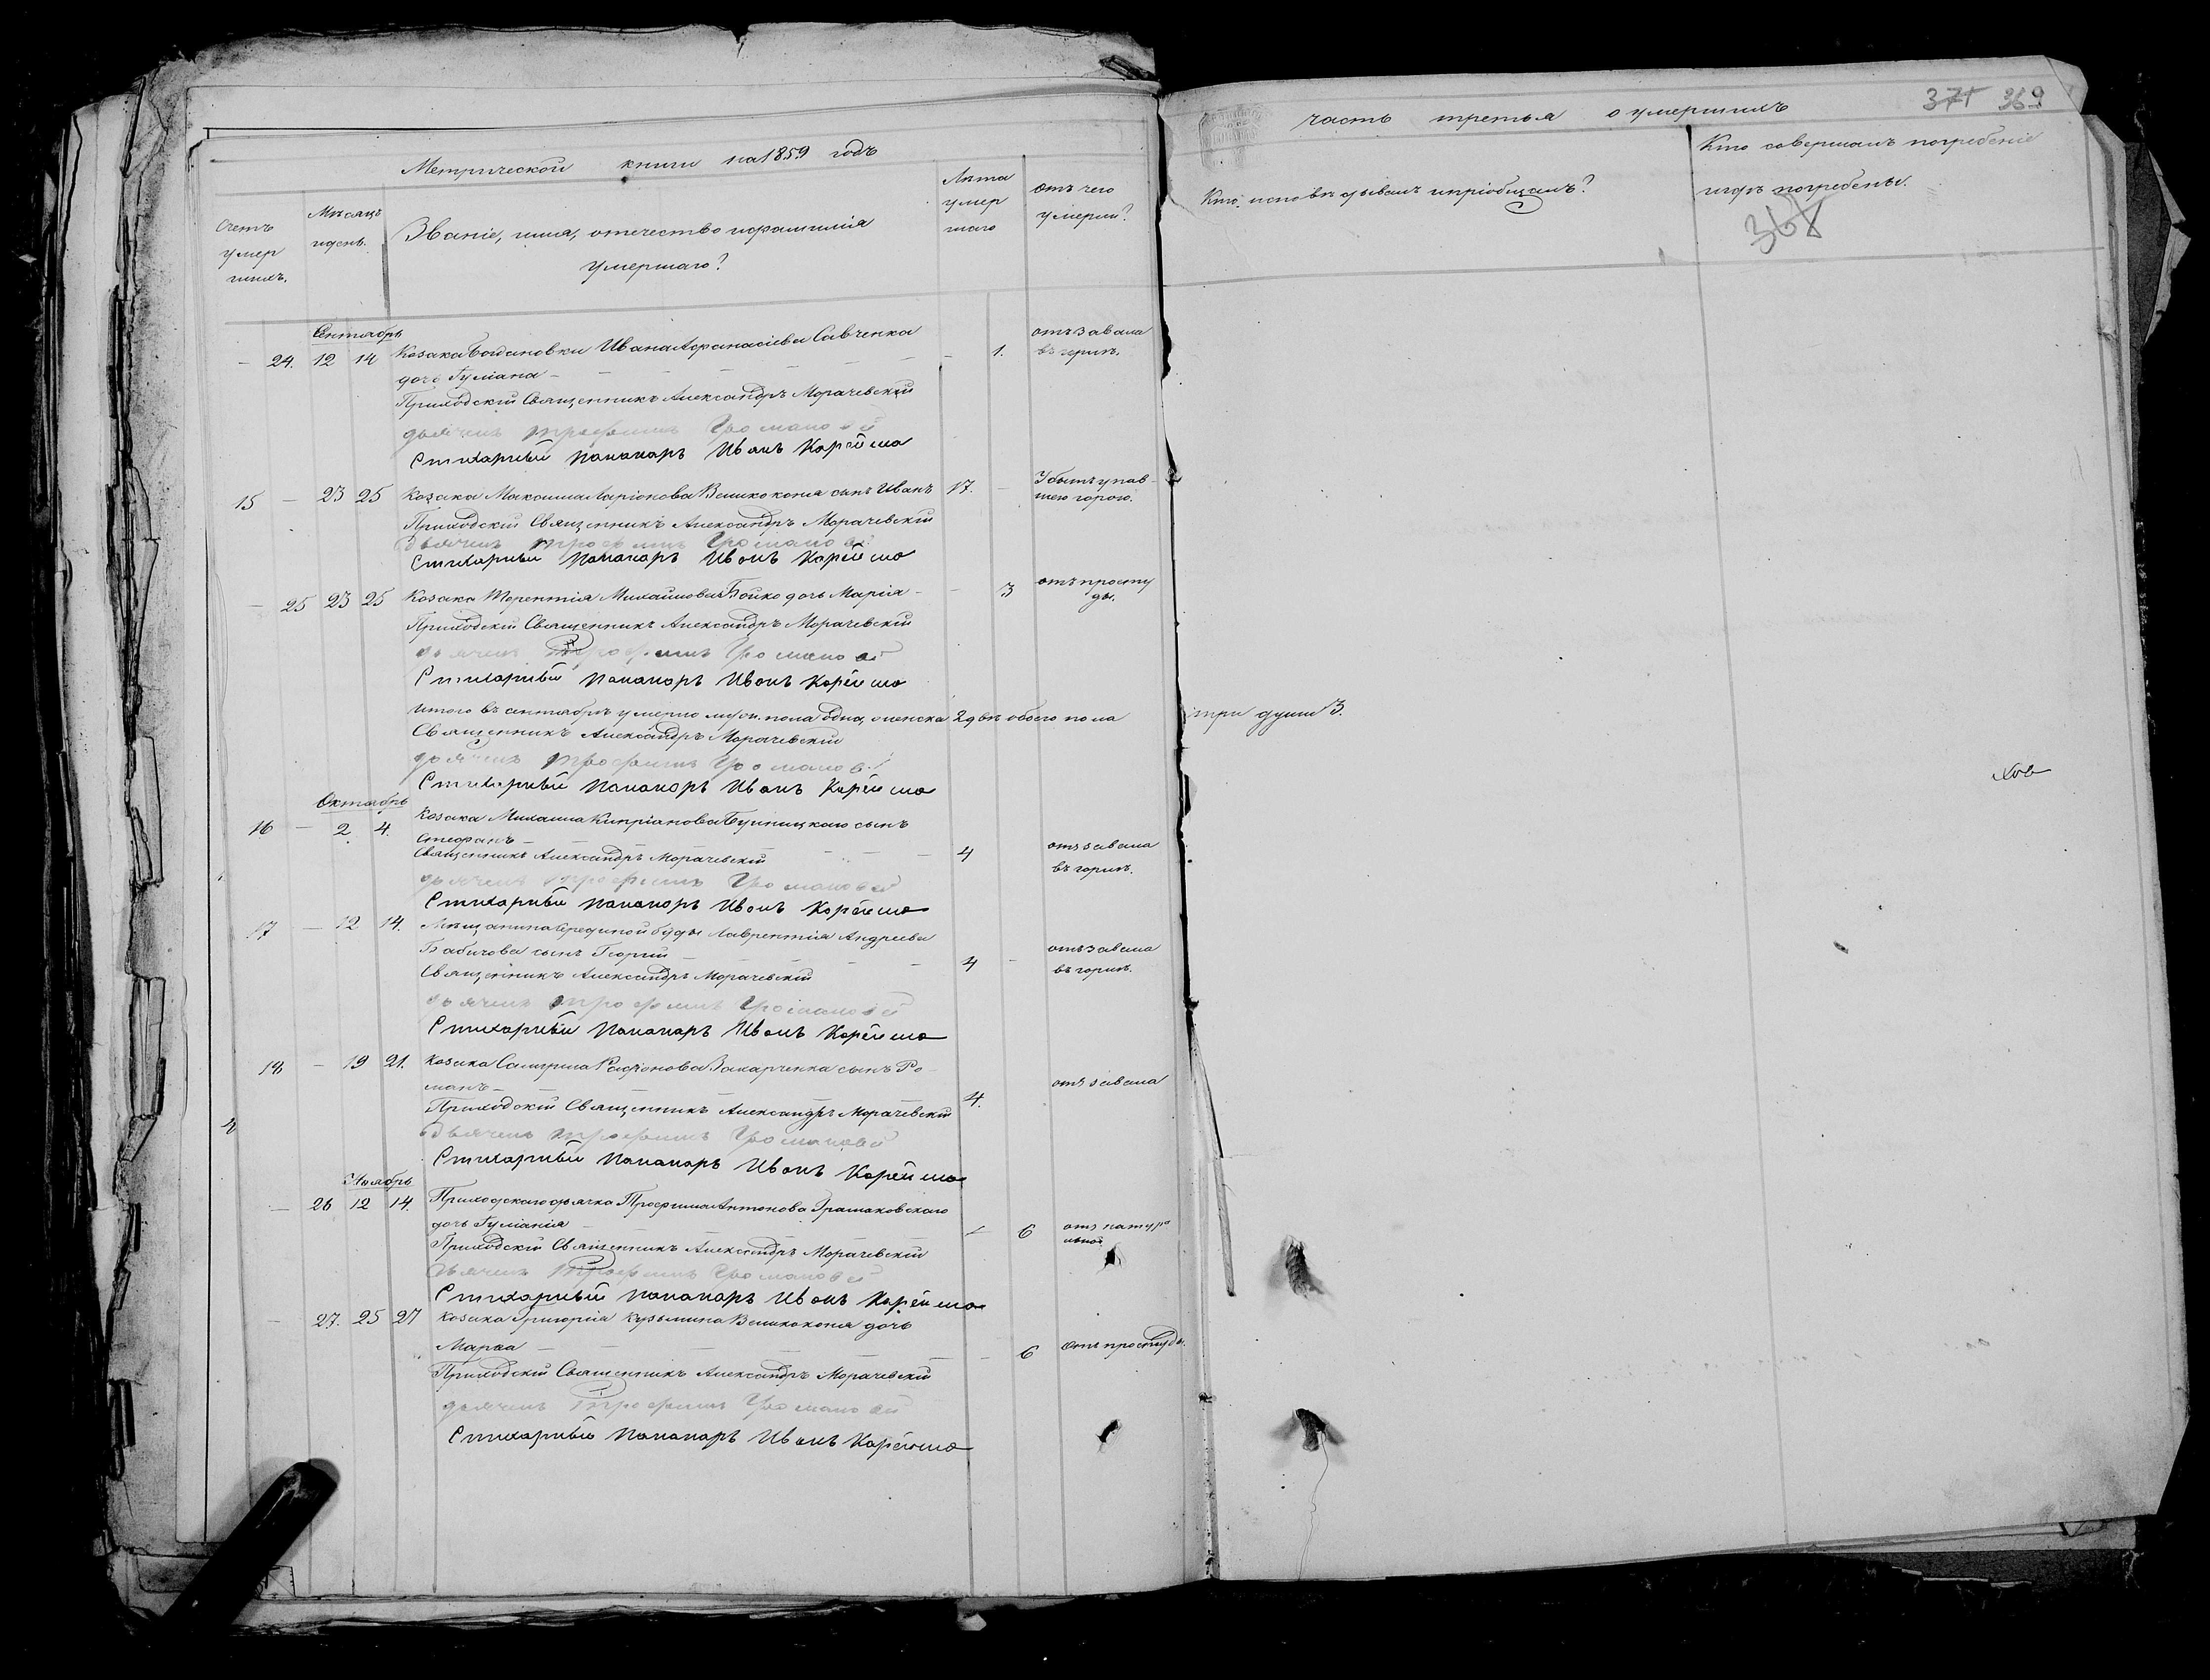 Метрической книги на 1859 годъ
часть третья о умершихъ
369
Счетъ умер шихъ.
Мѣсяцъ и день.
Званіе, имя, отечество и фамилія
умершаго?
Лѣта умер шаго
отъ чего умерли?
Кто исповѣдывалъ и пріобщалъ?
Кто совершалъ погребеніе
и гдѣ погребены.
Сентябрь
— 24. 12 14 Козака Богдановки Ивана Афанасіева Савченка — 1. отъ завала
дочь Гуліана — въ горлѣ.
Приходскій Священникъ Александръ Морачевскій
дьячекъ Трофимъ
Стихарный Паламаръ Иванъ Корейша
15 — 23 25 Козака Максима Ларіонова Великоконя сынъ Иванъ 17. — Убитъ упав-
шею горою.
Приходскій Священникъ Александръ Морачевскій
Дьячекъ Трофимъ
Стихарный Паламаръ Иванъ Корейша
— 25 23 25 Козака Терентія Михайлова Бойко дочь Марія — — 3 отъ просту
ды.
Приходскій Священникъ Александръ Морачевскій
дьячекъ Трофимъ
Стихарный Паламаръ Иванъ Корейша
Итого въ сентябрѣ умерло муж. пола одна, женска 2 двѣ обоего пола три души 3.
Священникъ Александръ Морачевскій
дьячекъ Трофимъ
Стихарный Паламаръ Иванъ Корейша
Октябрь
16 — 2 4. Козака Михаила Кипріанова сынъ
Стефанъ — 4 отъ завала
Священникъ Александръ Морачевскій въ горлѣ.
дьячекъ Трофимъ
Стихарный Паламаръ Иванъ Корейша
17 — 12 14. Мѣщанина Середнной буды Лаврентія Андреева
Бабичова сынъ Георгій — 4 — отъ завала
Священникъ Александръ Морачевскій въ горлѣ.
дьячекъ Трофимъ
Стихарный Паламаръ Иванъ Корейша
18 — 19 21. Козака Захарченка сынъ Ро
манъ — 4. отъ завала
Приходскій Священникъ Александръ Морачевскій
Дьячекъ Трофимъ
Стихарный Паламаръ Иванъ Корейша
Ноябрь
— 26 12 14. Приходскаго дьячка Трофима Антонова
дочь Гуліанія — 6 отъ натура
льной
Приходскій Священникъ Александръ Морачевскій
Дьячекъ Трофимъ
Стихарный Паламаръ Иванъ Корейша
— 27. 25 27 Козака Григорія Кузьмина Великоконя дочь
Марфа — 6 отъ простуды.
Приходскій Священникъ Александръ Морачевскій
дьячекъ Трофимъ
Стихарный Паламаръ Иванъ Корейша